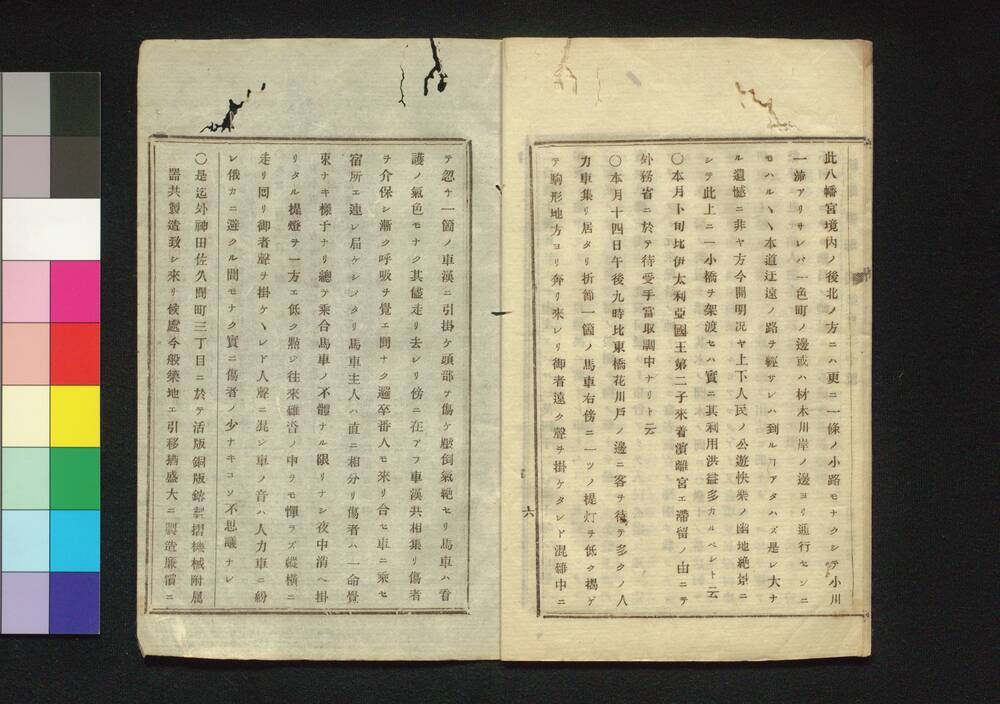 此八幡宮境内ノ後北ノ方ニハ更ニ一條ノ小路モナクシテ小川
一流アリサレバ一色町ノ邊或ハ材木川岸ノ邊ヨリ通行センニ
モハルヽヽ本道迂遠ノ路ヲ經サレハ到ルヿアタハズ是レ大ナ
ル遺憾ニ非ヤ方今開明况ヤ上下人民ノ公遊快樂ノ幽地絶景ニ
シテ此上ニ一小橋ヲ架渡セハ實ニ其利用洪益多カルベシト云
〇本月下旬比伊太利亞國王第二子來着濱離宮エ滯留ノ由ニテ
外務省ニ於テ待受手當取調中ナリト云
〇本月十四日午後九時比東橋花川戸ノ邊ニ客ヲ待テ多クノ人
力車集リ居タリ折節一箇ノ馬車右傍ニ一ツノ提灯ヲ低ク揭ゲ
テ駒形地方ヨリ奔リ來レリ御者遠ク聲ヲ掛ケタレド混雜中ニ
六
テ忽チ一箇ノ車漢ニ引掛ケ頭部ヲ傷ケ壓倒氣絶セリ馬車ハ看
護ノ氣色モナク其儘走リ去レリ傍ニ在アフ車漢共相集リ傷者
ヲ介保シ漸ク呼吸ヲ覺エ間ナク邏卒番人モ來リ合セ車ニ乘セ
宿所エ連レ届ケシシタリ馬車主人ハ直ニ相分リ傷者ハ一命覺
束ナキ樣子ナリ總テ乘合馬車ノ不體ナル限リナシ夜中消ヘ掛
リタル提燈ヲ一方エ低ク點ジ往來雜沓ノ中ヲモ憚ラズ縱橫ニ
走リ囘リ御者聲ヲ掛ケヽレド人聲ニ混シ車ノ音ハ人力車ニ紛
レ俄カニ避クル間モナク實ニ傷者ノ少ナキコソ不思議ナレ
〇是迄外神田佐久間町三丁目ニ於テ活版銅版鎔製摺機械附属
器共製造致シ來リ候處今般築地エ引移猶盛大ニ製造廉價ニ